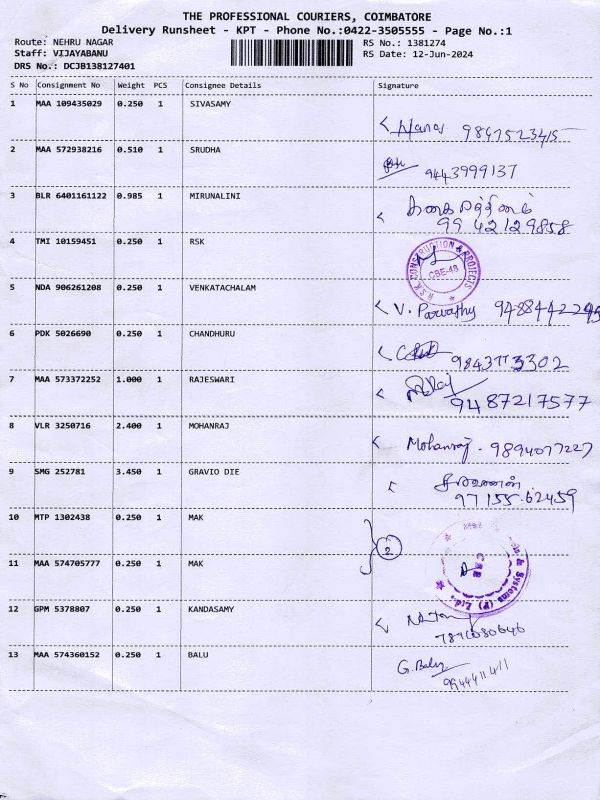 THE PROFESSIONAL COURIERS, COIMBATORE
Delivery Runsheet - KPT - Phone No.:0422-3505555 - Page No.:1
Route: NEHRU NAGAR RS No.: 1381274
Staff: VIJAYABANU RS Date: 12-Jun-2024
DRS No.: DCJB138127401
S No Consignment No Weight PCS Consignee Details Signature
1 MAA 109435029 0.250 1 SIVASAMY
9847523415
2 MAA 572938216 0.510 1 SRUDHA
9443999137
3 BLR 6401161122 0.985 1 MIRUNALINI
99 42129858
4 TMI 10159451 0.250 1 RSK
R.S.K. CONSTRUCTION & PROJECTS
CBE-48
5 NDA 906261208 0.250 1 VENKATACHALAM
V. Parvathy
6 PDK 5026690 0.250 1 CHANDHURU
7 MAA 573372252 1.000 1 RAJESWARI
9487217577
8 VLR 3250716 2.400 1 MOHANRAJ
Mohanraj - 9894077227
9 SMG 252781 3.450 1 GRAVIO DIE
சரவணன்
97155 62459
10 MTP 1302438 0.250 1 MAK
2
11 MAA 574705777 0.250 1 MAK
& Systems (P) Ltd.
12 GPM 5378807 0.250 1 KANDASAMY
13 MAA 574360152 0.250 1 BALU
G. Balu